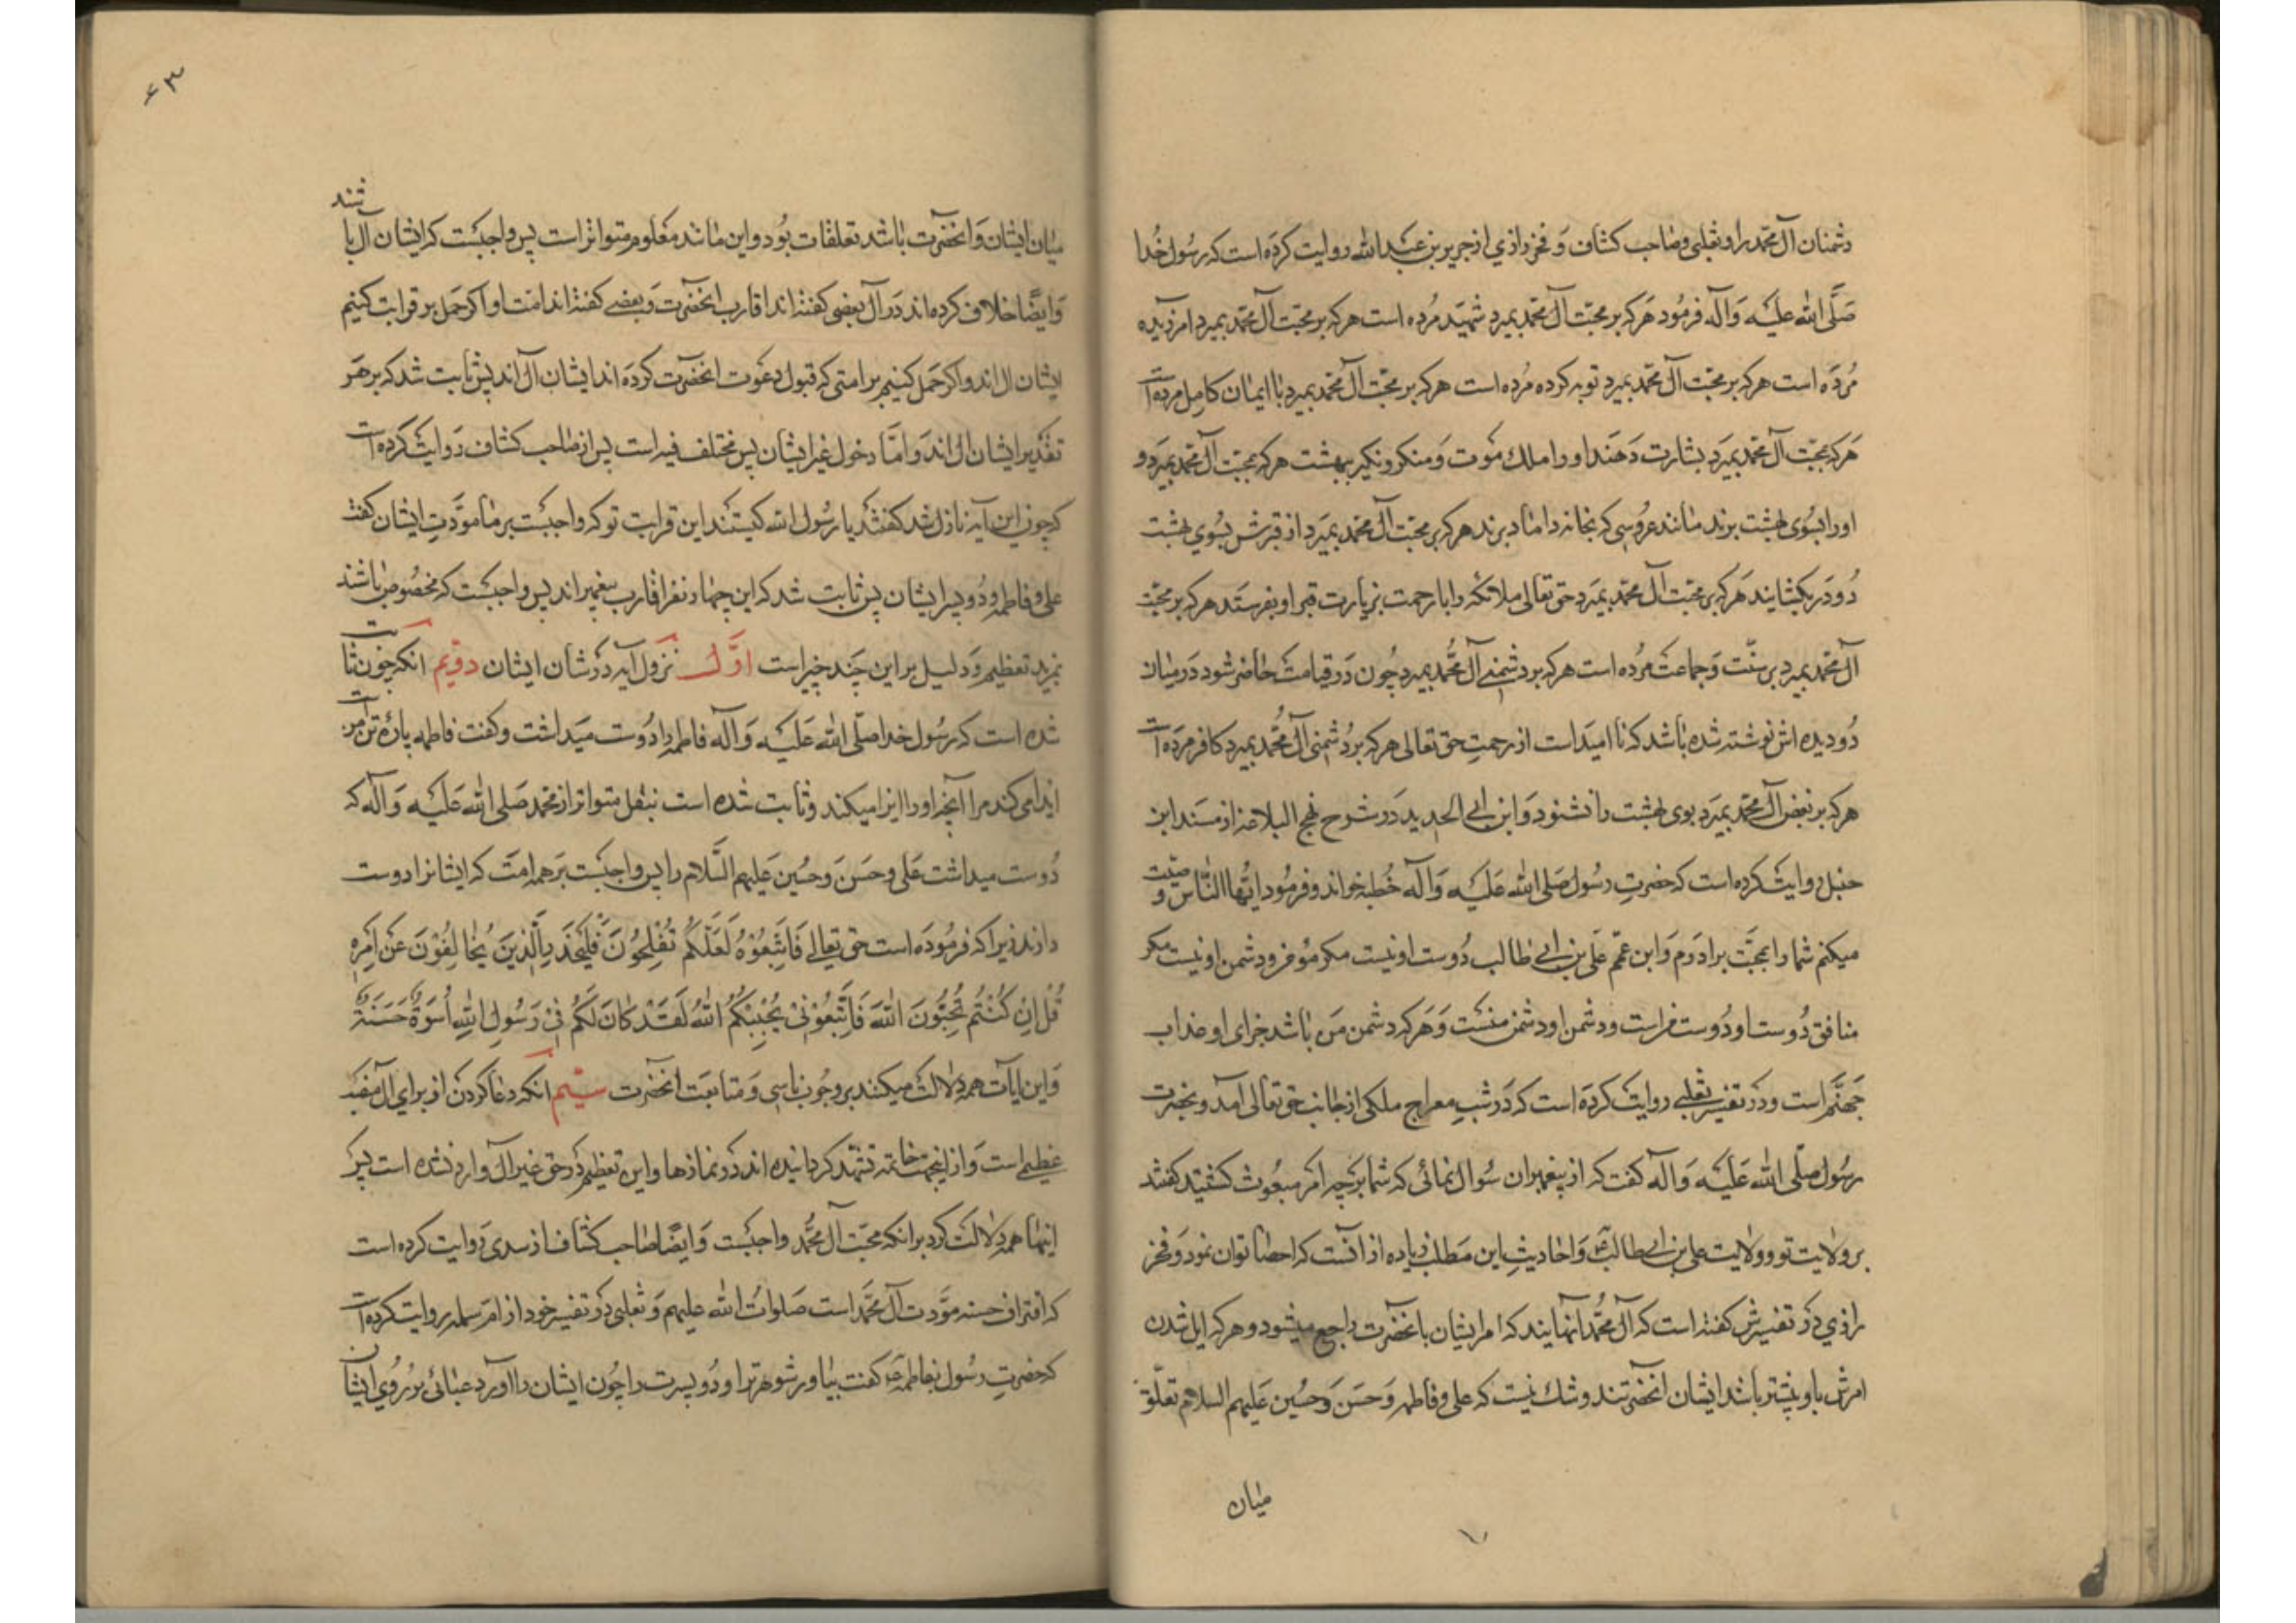 دشمنان آل محمد را و ثعلبی و صاحب کشاف و فخر رازی از جریر بن عبد الله روایت کرده است که رسول خدا
صلی الله علیه و آله فرمود هرکه بر محبت آل محمد بمیرد شهید مرده است هرکه بر محبت آل محمد بمیرد امرزیده
مرده است هرکه بر محبت آل محمد بمیرد توبه کرده مرده است هرکه بر محبت آل محمد بمیرد با ایمان کامل مرده است
هرکه بمحبت آل محمد بمیرد بشارت دهند او را ملك موت و منکر و نکیر ببهشت هرکه بمحبت آل محمد بمیرد و
او را بسوی بهشت برند مانند عروسی که بخانه داماد برند هرکه بر محبت آل محمد بمیرد از قبرش بسوی بهشت
دو در بکشایند هرکه بر محبت آل محمد بمیرد حق تعالی ملائکه را با رحمت بزیارت قبر او بفرستد هرکه بر محبت
آل محمد بمیرد بر سنت و جماعت مرده است هرکه بر دشمنی آل محمد بمیرد چون در قیامت حاضر شود در میان
دو دیده اش نوشته شده باشد که نا امید است از رحمت حق تعالی هرکه بر دشمنی آل محمد بمیرد کافر مرده است
هرکه بر بغض آل محمد بمیرد بوی بهشت را نشنود و ابن ابی الحدید در شوح نهج البلاغه از مسند ابن
حنبل روایت کرده است که حضرت رسول صلی الله علیه و آله خطبه خواند و فرمود ایها الناس وصیت
میکنم شما را بمحبت برادرم و ابن عمم علی بن ابی طالب دوست او نیست مکر مؤمن و دشمن او نیست مکر
منافق دوست او دوست من است و دشمن او دشمن منست و هرکه دشمن من باشد جزای او عذاب
جهنم است و در تفسیر ثعلبی روایت کرده است که در شب معراج ملکی از جانب حق تعالی آمد و بحضرت
رسول صلی الله علیه و آله کفت که از پیغمبران سوال نمائی که شما بر چه امر مبعوث کشتید کفتند
بر ولایت تو و ولایت علی بن ابی طالب و احادیث این مطلب زیاده از انست که احصا توان نمود و فخر
رازی در تفسیرش کفته است که آل محمد انهایند که امر ایشان بانحضرت راجع میشود و هرکه ایل شدن
امرش باو بیشتر باشد ایشان انحضرتند و شك نیست که علی و فاطمه و حسن و حسین علیهم السلام تعلق
میان
۶۳
میان ایشان و انحضرت باشد تعلقات بود و این مانند معلوم متواتر است پس واجبست که ایشان آل باشند
و ایضا خلاف کرده اند در آل بعضی کفته اند اقارب انحضرت و بعضی کفته اند امت او اکر حمل بر قرابت کنیم
ایشان ال اند و اکر حمل کنیم بر امتی که قبول دعوت انحضرت کرده اند ایشان آل اند پس ثابت شد که بر هر
تقدیر ایشان ال اند و اما دخول غیر ایشان پس مختلف فیه است پس از صاحب کشاف روایت کرده است
که چون این آیه نازل شد کفتند یا رسول الله کیستند این قرابت تو که واجبست بر ما مودت ایشان کفت
علی و فاطمه و دو پسر ایشان پس ثابت شد که این چهار نفر اقارب پیغمبر اند پس واجبست که مخصوص باشند
بمزید تعظیم و دلیل بر این چند چیز است اول نزول آیه در شان ایشان دویم انکه چون ثابت
شده است که رسول خدا صلی الله علیه و آله فاطمه را دوست میداشت و کفت فاطمه پاره تن من
ایذا می کند مرا آنچه او را ایزا میکند و ثابت شده است بنقل متواتر از محمد صلی الله علیه و آله که
دوست میداشت علی و حسن و حسین علیهم السلام را پس واجبست بر همه امت که ایشانرا دوست
دارند زیرا که فرموده است حق تعالی فَاتَّبِعُوْهُ لَعَلَّكُمْ تُفْلِحُونَ فَلْيَحْذَرِ الَّذِينَ يُخَالِفُوْنَ عَنْ اَمْرِهِ
قُلْ اِنْ كُنْتُمْ تُحِبُّونَ اللّٰهَ فَاتَّبِعُوْنِيْ يُحْبِبْكُمُ اللّٰهُ لَقَدْ كَانَ لَكُمْ فِيْ رَسُولِ اللّٰهِ اُسْوَةٌ حَسَنَةٌ
و این ایات همه دلالت میکنند بر وجوب تاسی و متابعت انحضرت سیم انکه دعا کردن از برای آل منصب
عظیمی است و از اینجهت خاتمه تشهد کردانیده اند در نمازها و این تعظیم در حق غیر آل وارد نشده است پس
اینها همه دلالت کرد بر انکه محبت آل محمد واجبست و ایضا صاحب کشاف از سدی روایت کرده است
که اقتراف حسنه مودت آل محمد است صلوات الله علیهم و ثعلبی در تفسیر خود از ام سلمه روایت کرده است
که حضرت رسول بفاطمه کفت بیاور شوهرترا و دو پسرت را چون ایشان را آورد عبائی بر روی ایشان